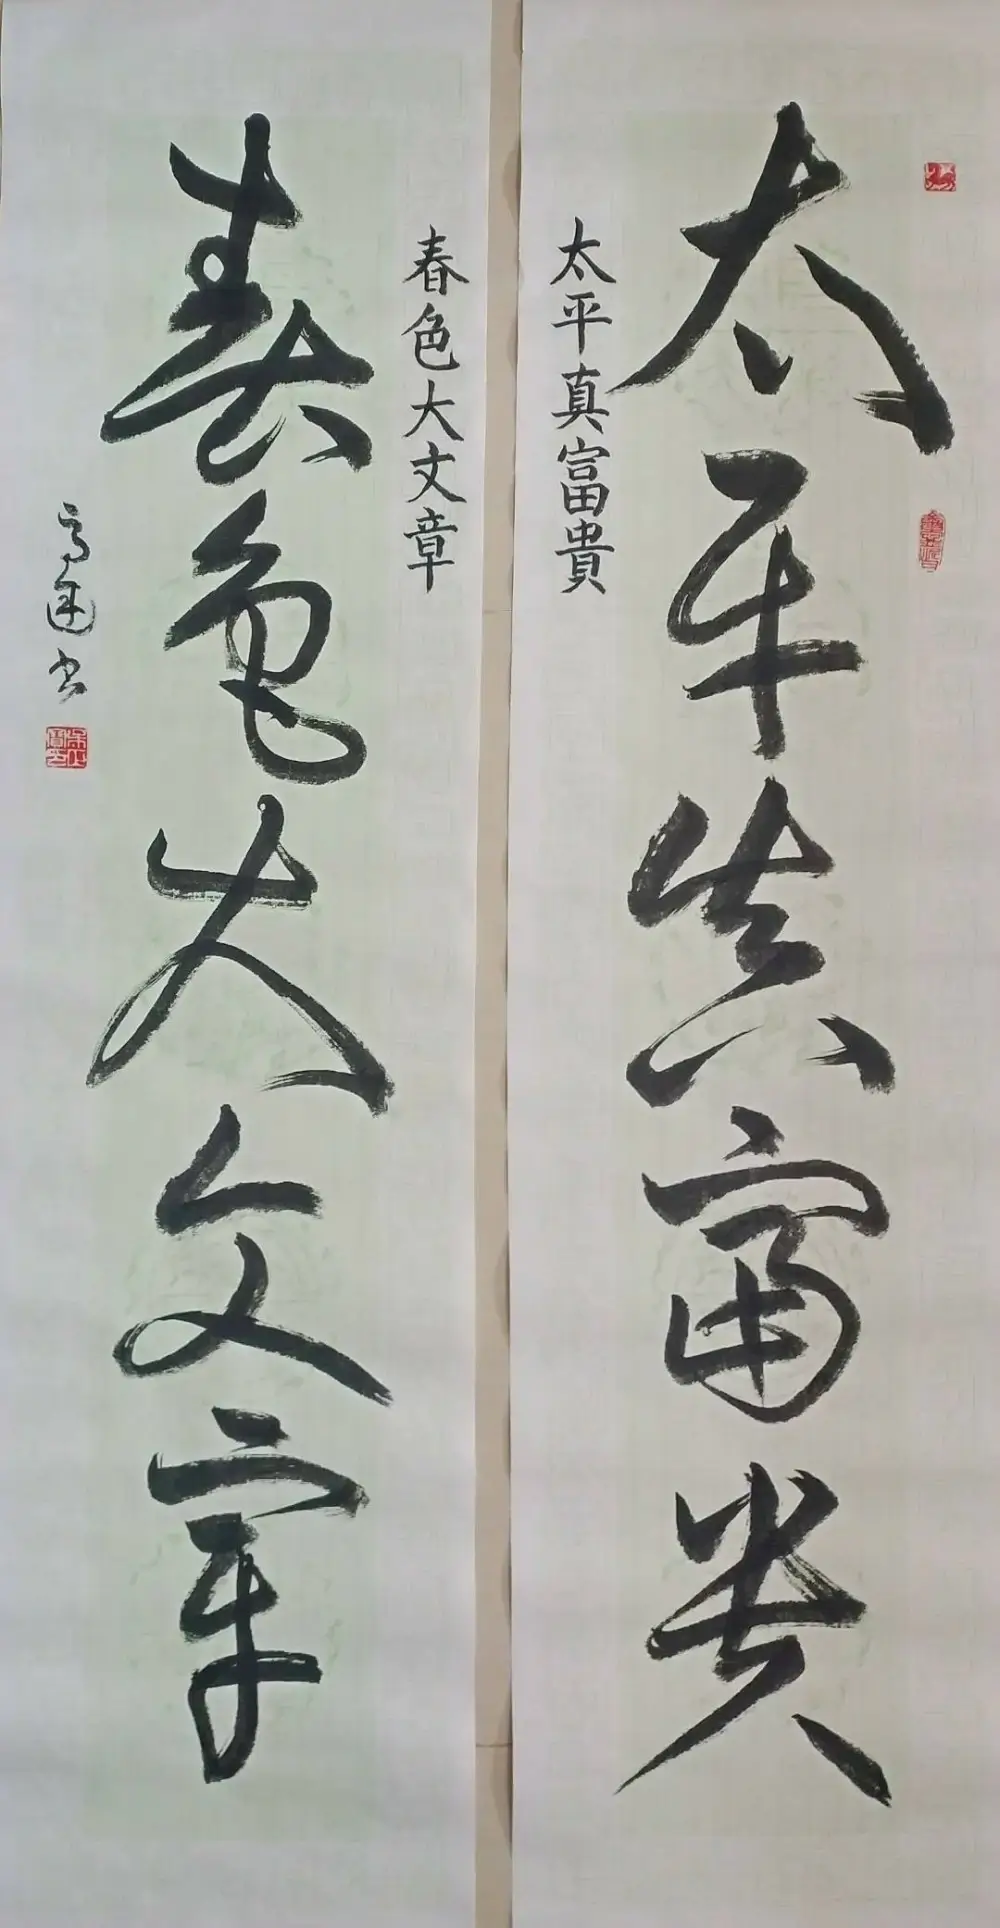 太平真富貴
太平真富貴
春色大文章
春色大文章